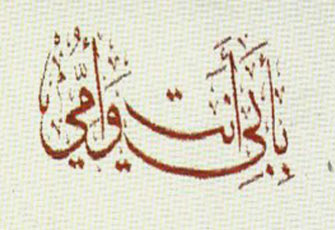 بِأَبِي أَنْتَ وَأُمِّي